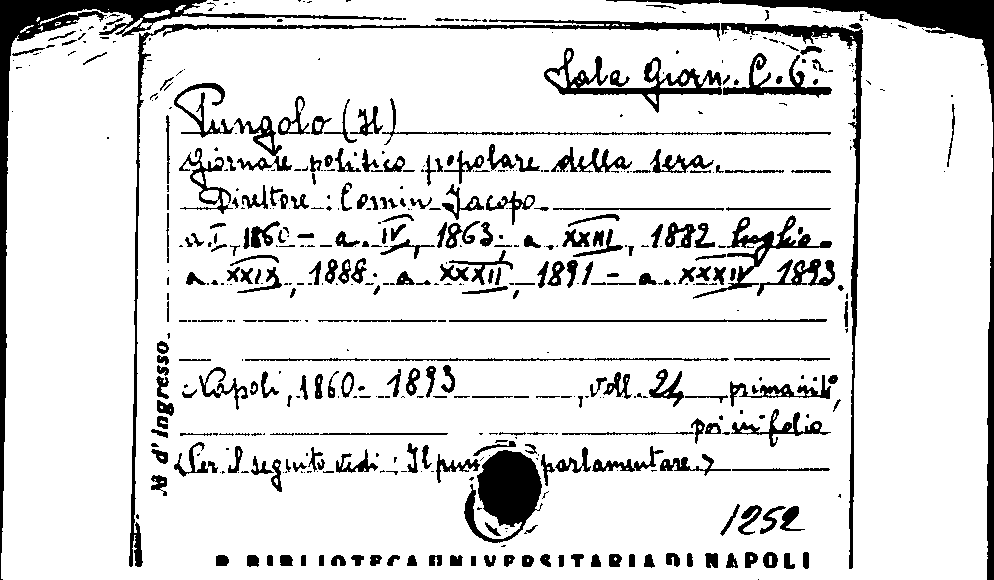 Sala Giorn. C. 6.
Pungolo (Il)
Giornale politico popolare della sera.
Direttore: Comin Jacopo.
a. I, 1860 - a. IV, 1863; a. XXIII, 1882 luglio -
a. XXIX, 1888; a. XXXII, 1891 - a. XXXIV, 1893.
Napoli, 1860 - 1893, voll. 21, prima in 4°,
poi in folio
<Per il seguito vedi: Il parlamentare.>
1252
R. BIBLIOTECA UNIVERSITARIA DI NAPOLI
No d'Ingresso.